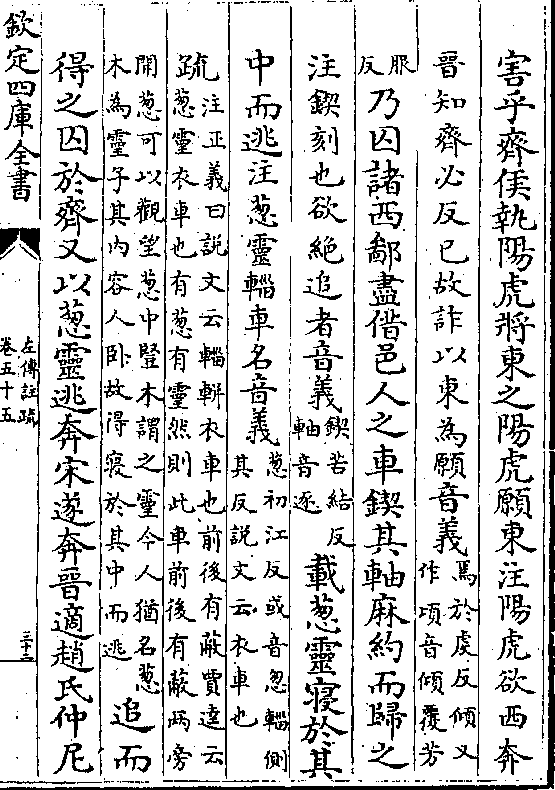 害乎齊侯執陽虎將東之陽虎願東注陽虎欲西奔
晉知齊必反己故詐以東為願音義焉於虔反傾又
作項音傾覆芳
服
反乃囚諸西鄙盡借邑人之車鍥其軸麻約而歸之
注鍥刻也欲絶追者音義鍥苦結反
軸音逐載葱靈寢於其
中而逃注葱靈輜車名音義葱初江反或音怱輜側
其反説文云衣車也
疏注正義曰説文云輜軿衣車也前後有蔽賈逵云
葱靈衣車也有葱有靈然則此車前後有蔽兩旁
開葱可以觀望葱中豎木謂之靈今人猶名葱
木為靈子其内容人卧故得寢於其中而逃追而
得之囚於齊又以葱靈逃奔宋遂奔晉適趙氏仲尼
欽定四庫全書
左傳註疏
卷五十五
三十二